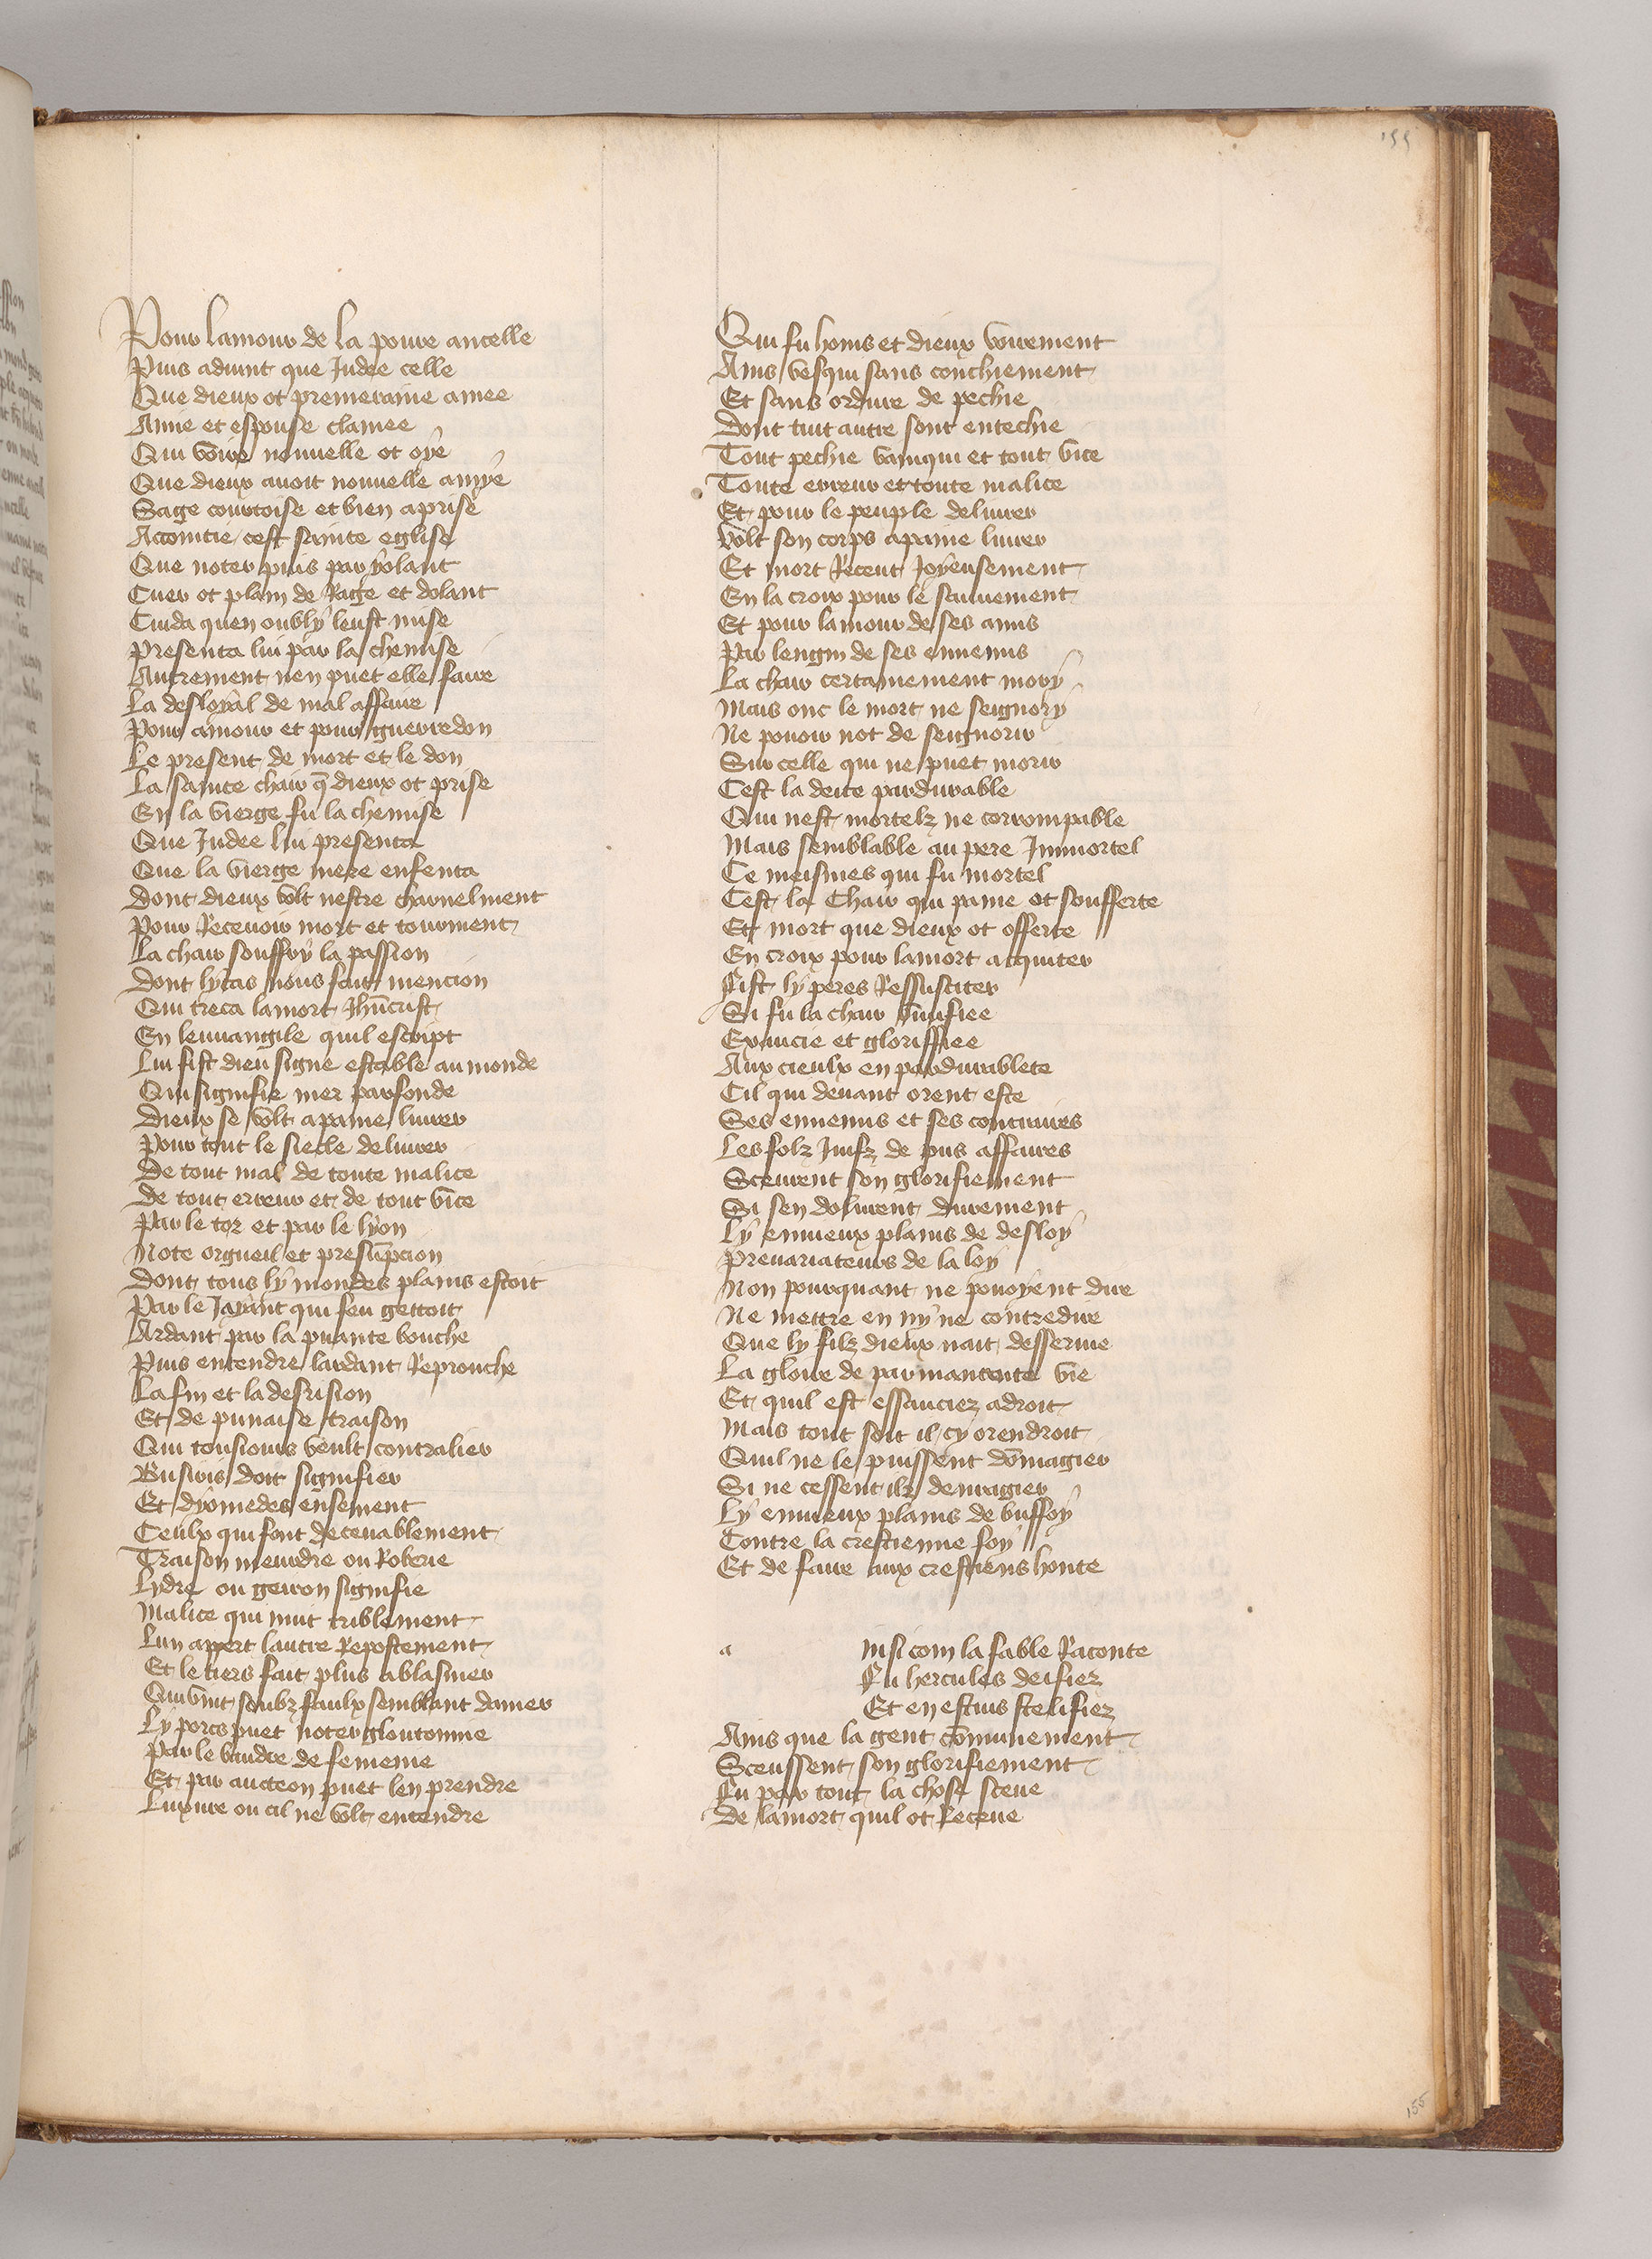 155
Pour lamour de la poure ancelle
Puis aduint que Judee celle
Que dieux ot premeraine amee
Amie et espouse clamee
Qui voire nouuelle ot oye
Que dieux auoit nouuelle amye
Sage courtoise et bien aprise
Acointie cest sainte eglise
Que noter puis par yolant
Cuer ot plain de Rage et dolant
Cuida quen oubly leust mise
Presenta lui par la chemise
Autrement nen puet elle faire
La desloyal de mal affaire
Pour amour et pour guerredon
Le present de mort et le don
La sainte chair q̄ dieux ot prise
En la vierge fu la chemise
Que Judee lui presenta
Que la vierge mere enfenta
Dont dieux volt nestre charnelment
Pour Receuoir mort et tourment
La chair souffry la passion
Dont lycas nous fait mencion
Qui treca lamort Jhūcrist
En leuuangile quil escript
Lui fist dieu signe estable au monde
Qui signifie mer parfonde
Dieux se volt a paine liurer
Pour tout le siecle deliurer
De tout mal de toute malice
De tout erreur et de tout vice
Par le tor et par le lyon
Note orgueil et presūpcion
Dont tous ly mondes plains estoit
Par le Jayant qui feu gettoit
Ardant par la puante bouche
Puis entendre lardant Reprouche
La fin et la desrision
Et de punaise traison
Qui tousiours veult contralier
Busiris doit signifier
Et dyomedes ensement
Ceulx qui font deceuablement
Traison meurdre ou Roberie
Lydre ou gerion signifie
Malice qui nuit triblement
Lun apert lautre Repostement
Et le tiers fait plus a blasmer
Qui vint soubz faulx semblant damer
Ly porcs puet noter gloutonnie
Par le vandre de femenie
Et par acteon puet len prendre
Luxure ou cil ne volt entendre
Qui fu homs et dieux voirement
Ains vesqui sans conchiement
Et sans ordure de pechie
Dont tuit autre sont entechie
Tout pechie vainqui et tout vice
Toute erreur et toute malice
Et pour le peuple deliurer
Volt son corps a paine liurer
Et mort Receut Joyeusement
En la croix pour le sauuement
Et pour lamour de ses amis
Par lengin de ses ennemis
La chair certainement mory
Mais onc le mort ne seignory
Ne pouoir not de seignorir
Sur celle qui ne puet morir
Cest la deite pardurable
Qui nest mortelz ne corrompable
Mais semblable au pere Jmmortel
Ce meismes qui fu mortel
Cest la Chair qui paine ot soufferte
Et mort que dieux ot offerte
En croix pour lamort acquiter
Fist ly peres Ressusciter
Si fu la chair viuifiee
Exaucie et gloriffiee
Aux cieulx en pardurablete
Cil qui deuant orent este
Ses ennemis et ses contraires
Les folz Juifz de pus affaires
Sceurent son glorifiement
Si sen dolurent durement
Ly enuieux plains de desloy
Preuariateurs de la loy
Non pourquant ne pouoyent dire
Ne mettre en ny ne contredire
Que ly filz dieux nait desseruie
La gloire de parmanente vie
Et quil est essauciez adroit
Mais tout soit il cy orendroit
Quil ne le puissent dōmagier
Si ne cessent ilz denragier
Ly enuieux plains de buffoy
Contre la crestienne foy
Et de faire aux crestiens honte
a
insi com la fable Raconte
Fu hercules deifiez
Et en estius stelifiez
Ains que la gent cōmunement
Sceussent son glorifiement
Fu par tout la chose sceue
De lamort quil ot Receue
155